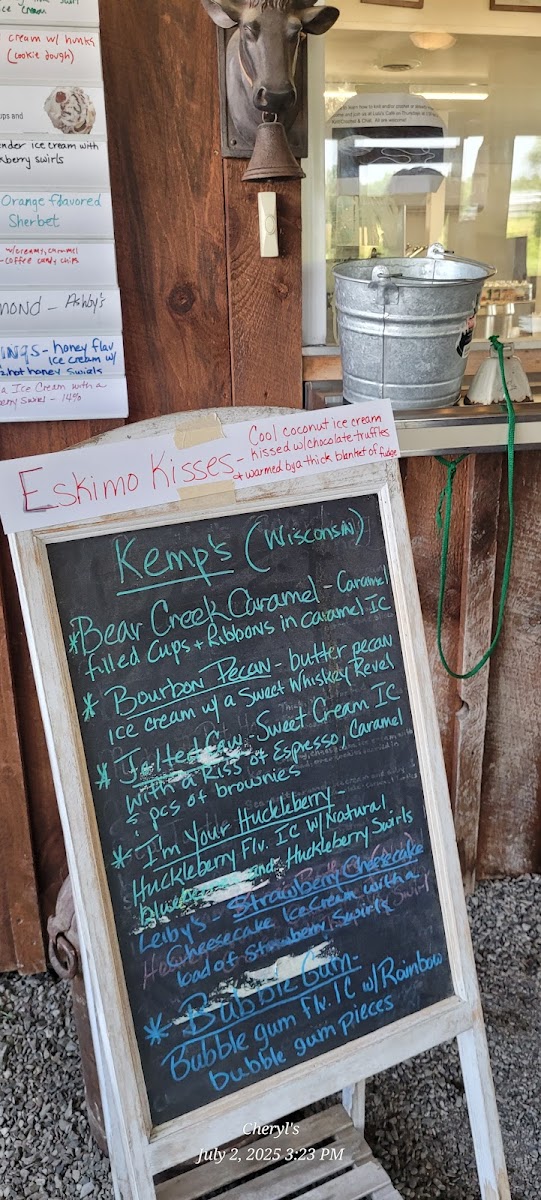 ice cream
cream w/ hunks
(cookie dough)
ups and
nder ice cream with
berry swirls
Orange flavored
Sherbet
w/creamy caramel
-coffee candy chips
mond - Ashby's
ings - honey flav
ice cream w/
hot honey swirls
a Ice Cream with a
erry Swirl - 14%
Eskimo Kisses - Cool coconut ice cream
kissed w/chocolate truffles
+ warmed by a thick blanket of fudge
Kemp's (Wisconsin)
*Bear Creek Caramel - Caramel
filled Cups + Ribbons in caramel IC
* Bourbon Pecan - butter pecan
ice cream w/ a Sweet Whiskey Revel
* Jolted Cow - Sweet Cream IC
with a Riss of Espresso, Caramel
& pcs of brownies
* I'm Your Huckleberry -
Huckleberry Flv. IC w/ Natural
and Huckleberry Swirls
Leiby's - Strawberry Cheesecake
Cheesecake Ice Cream with a
load of Strawberry Swirls
* Bubble Gum -
Bubble gum flv. IC w/ Rainbow
bubble gum pieces
Cheryl's
July 2, 2025 3:23 PM